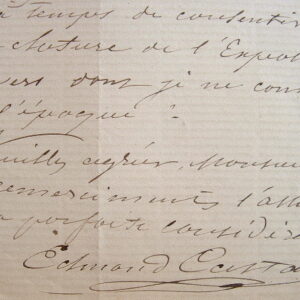 temps de consentir
cloture de l'Expo
vers dont je ne con
l'époque.
euillez agréer, Monsieu
remerciments l'ass
parfaite considéra
Edmond Casta